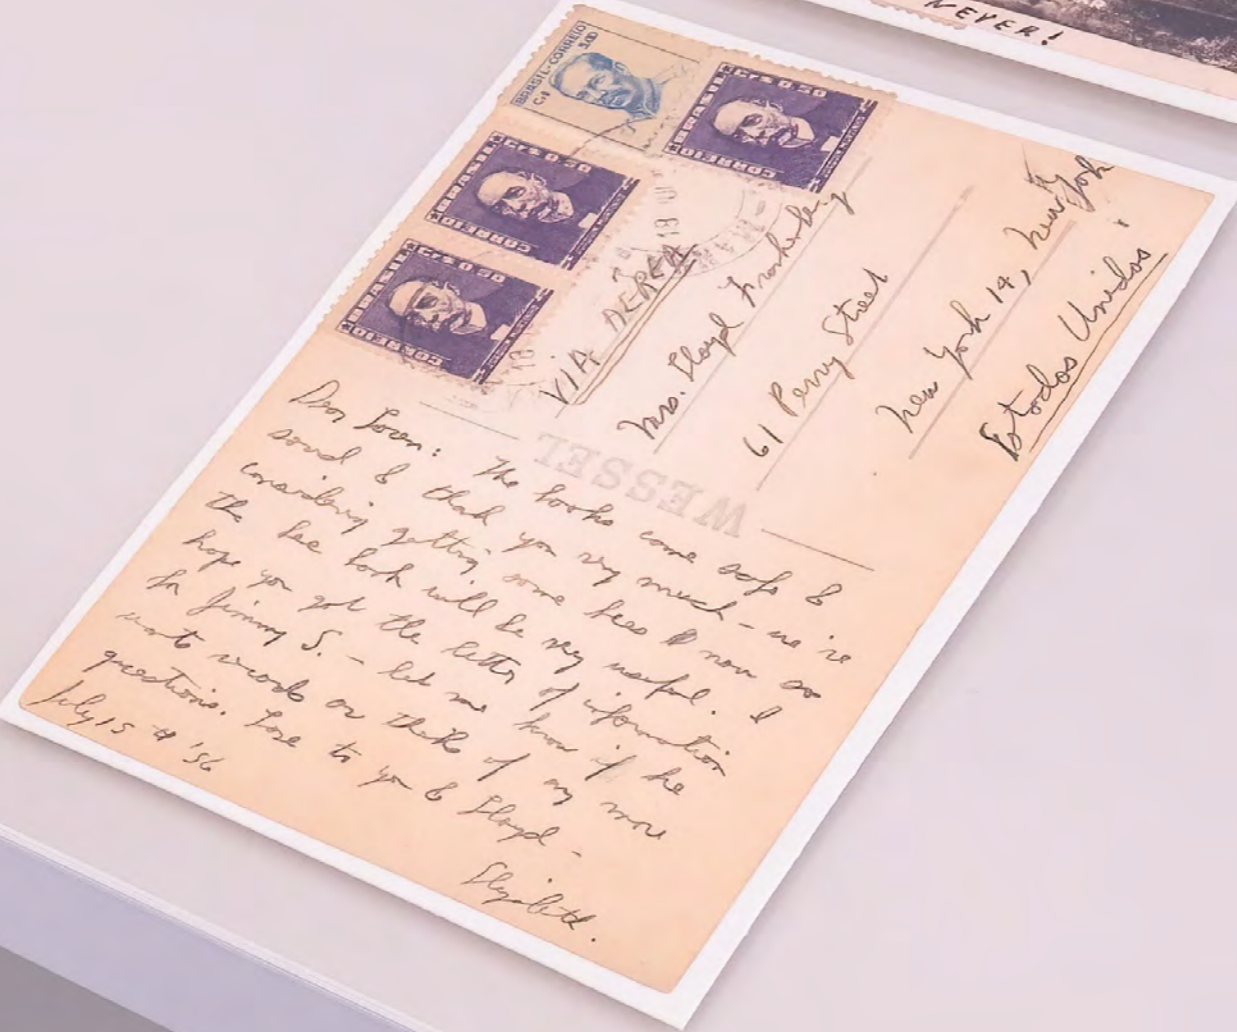 NEVER!
BRASIL-CORREIO
Cr$ 5,00
BRASIL
Cr$ 0,50
CORREIO
BRASIL
Cr$ 0,50
CORREIO
BRASIL
Cr$ 0,50
CORREIO
VIA AEREA
Mrs. Lloyd Frankenberg
61 Perry Street
New York 14, New York
Estados Unidos
WESSEL
Dear Loren: The books came safe &
sound & thank you very much – we're
considering getting some bees now so
the bee book will be very useful. I
hope you got the letter of information
for Jimmy S. – let me know if he
wants records or thinks of any more
questions. Love to you & Lloyd –
Elizabeth.
July 15th '56